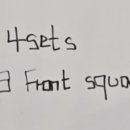 4 sets
Front squa